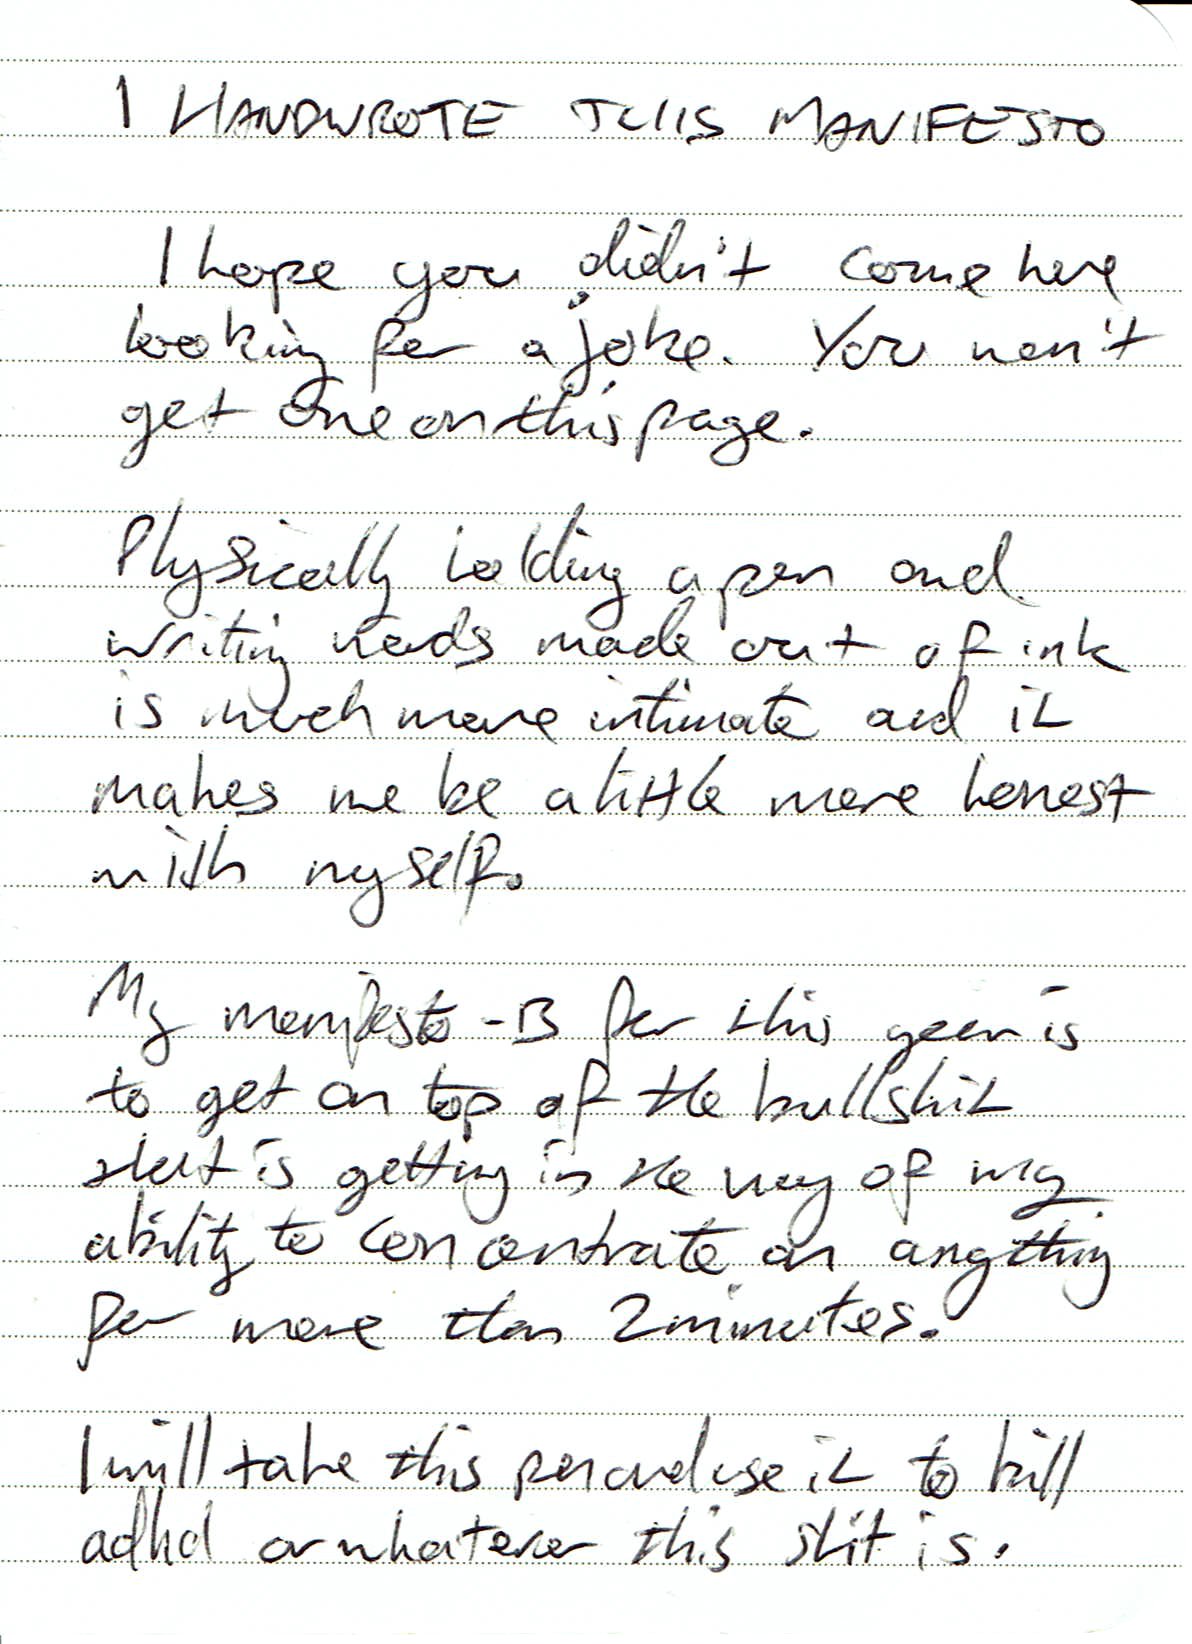 I HANDWROTE THIS MANIFESTO
I hope you didn't come here
looking for a joke. You won't
get one on this page.
Physically holding a pen and
writing words made out of ink
is much more intimate and it
makes me be a little more honest
with myself.
My manifesto-B for this year is
to get on top of the bullshit
that is getting in the way of my
ability to concentrate on anything
for more than 2 minutes.
I will take this pen and use it to kill
adhd or whatever this shit is.